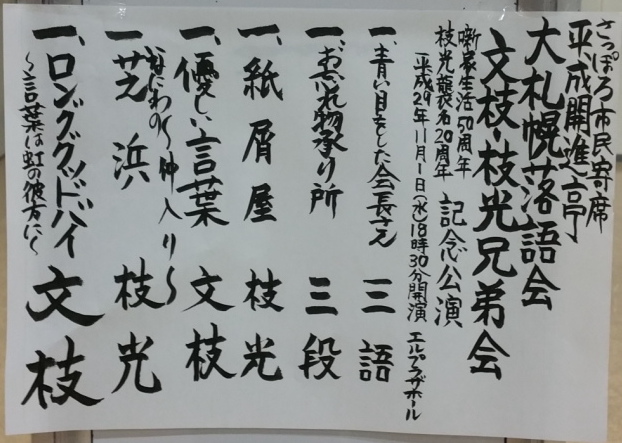 さっぽろ市民寄席
平成開進亭
大札幌落語会
文枝・枝光兄弟会
噺家生活50周年
枝光襲名20周年
記念公演
平成29年11月1日(水)18時30分開演 エルプラザホール
一、青い目をした会長さん 三語
一、お忘れ物承り所 三段
一、紙屑屋 枝光
一、優しい言葉 文枝
〜仲入り〜
一、なにわの芝浜 枝光
一、ロンググッドバイ 文枝
〜言葉は虹の彼方に〜